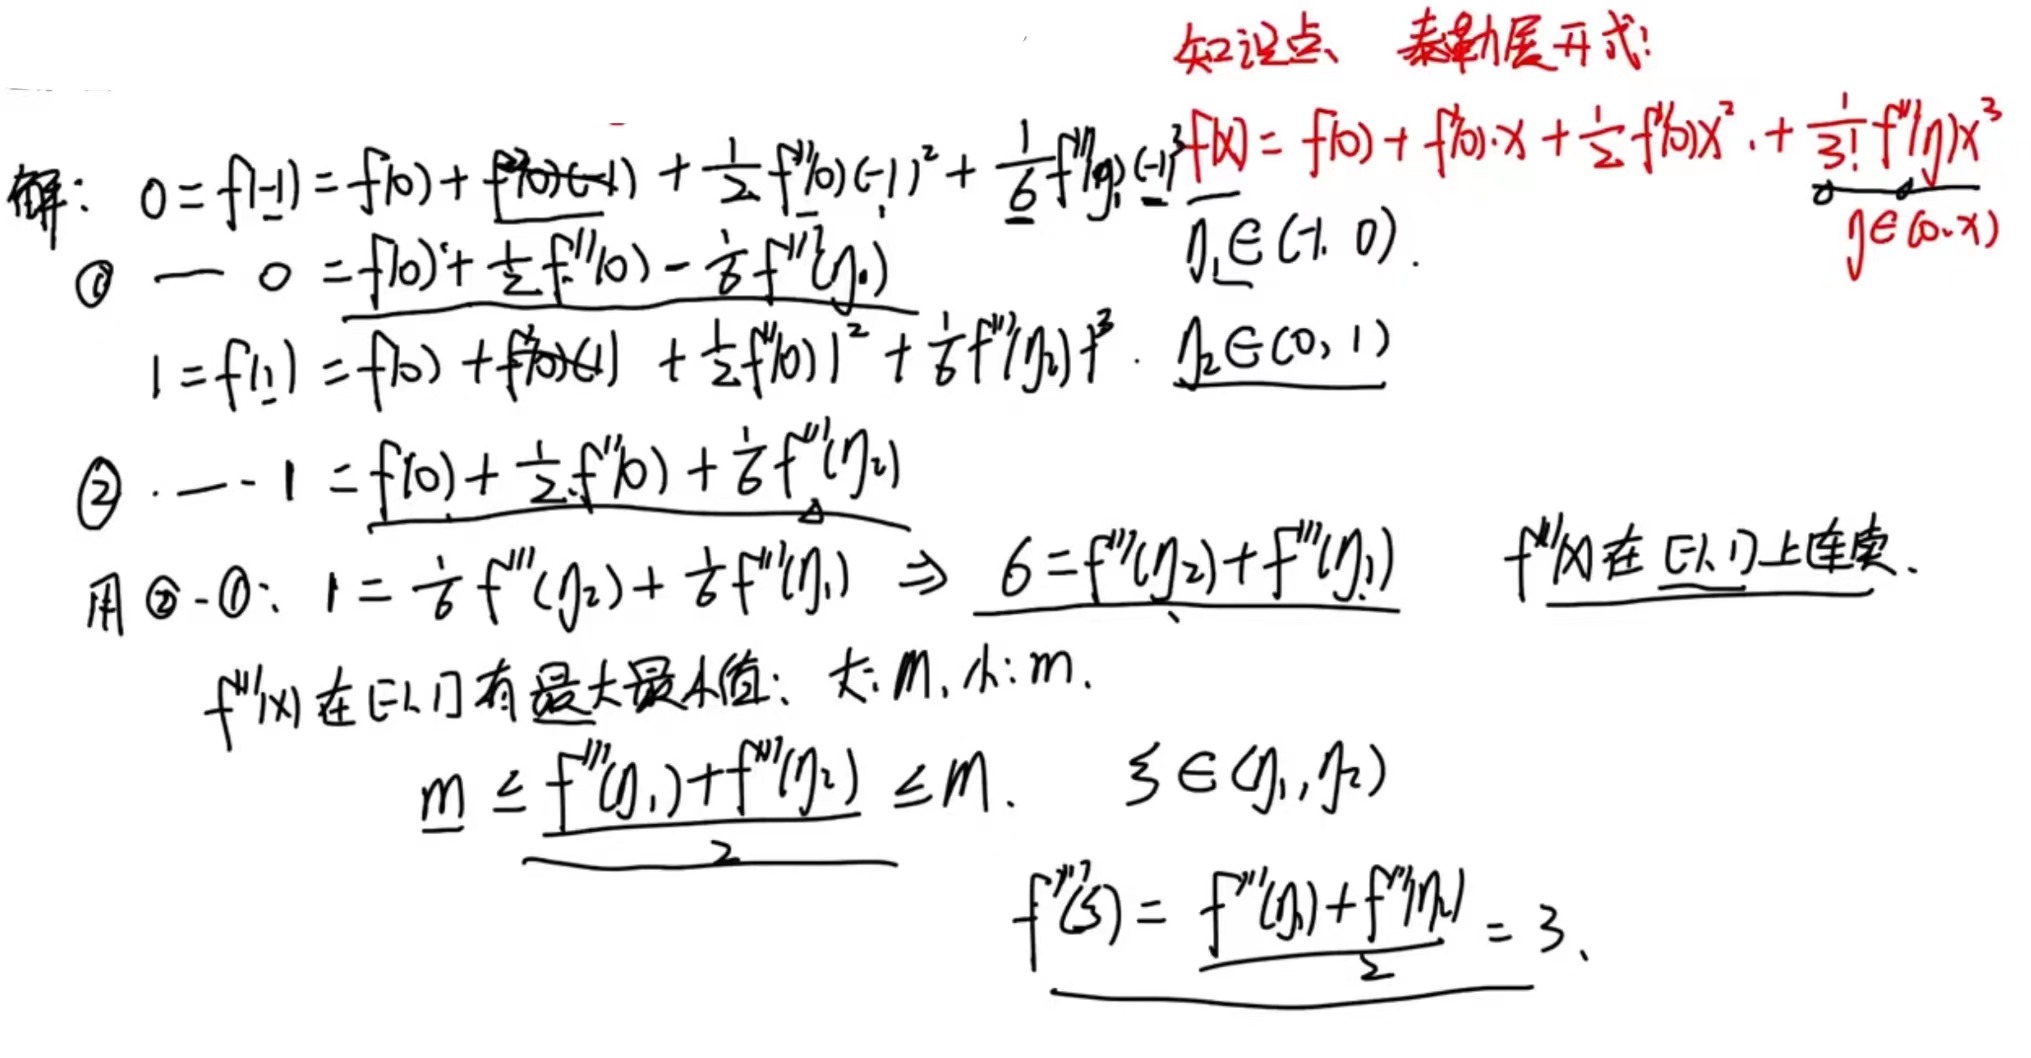 知识点、 泰勒展开式:
f(x) = f(0) + f'(0)·x + 1/2 f''(0)x² + 1/3! f'''(η)x³
η∈(0,x)
解: 0 = f(-1) = f(0) + f'(0)(-1) + 1/2 f''(0)(-1)² + 1/6 f'''(η₁)(-1)³
η₁∈(-1, 0).
① — 0 = f(0) + 1/2 f''(0) - 1/6 f'''(η₁)
1 = f(1) = f(0) + f'(0)(1) + 1/2 f''(0)1² + 1/6 f'''(η₂)1³. η₂∈(0, 1)
② ·—- 1 = f(0) + 1/2 f''(0) + 1/6 f'''(η₂)
用②-①: 1 = 1/6 f'''(η₂) + 1/6 f'''(η₁) ⇒ 6 = f'''(η₂) + f'''(η₁) f'''(x)在[-1,1]上连续.
f'''(x)在[-1,1]有最大最小值: 大: M, 小: m.
m ≤ (f'''(η₁)+f'''(η₂))/2 ≤ M. ξ∈(η₁, η₂)
f'''(ξ) = (f'''(η₁)+f'''(η₂))/2 = 3、